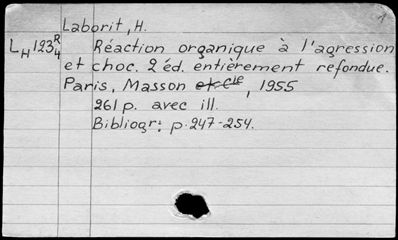 1
Laborit, H.
LH123R4 Réaction organique à l'agression
et choc. 2 éd. entièrement refondue.
Paris, Masson et Cie, 1955
261 p. avec ill.
Bibliogr: p. 247-254.